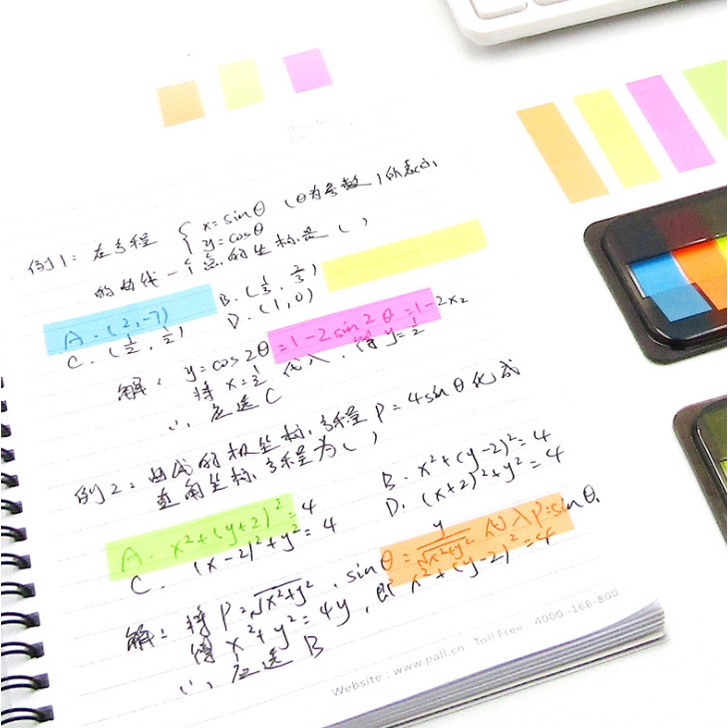 例1：在方程 { x=sinθ (θ为参数)所表示
y=cosθ
的曲线一个点的坐标是( )
A.(2,-7) B.(1/3, 2/3)
C.(1/2, 1/2) D.(1,0)
解：y=cos2θ=1-2sin2θ=1-2x2
将x=1/2代入,得y=1/2
∴应选C
例2：曲线的极坐标方程P=4sinθ化成
直角坐标方程为( )
A. x²+(y+2)²=4 B. x²+(y-2)²=4
C. (x-2)²+y²=4 D. (x+2)²+y²=4
解：将P=√x²+y², sinθ=y/√x²+y²代入P=4sinθ,
得x²+y²=4y,即x²+(y-2)²=4
∴应选B
Website : www.pall.cn Toll Free - 4000 -168-800